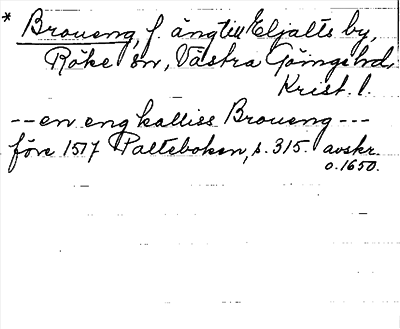 * Broueng, f. äng till Eljalts by,
Röke sn, Västra Göinge hd,
Krist. l.
-- en eng kalliss Broueng ---
före 1517 Palteboken, s. 315. avskr.
o. 1650.